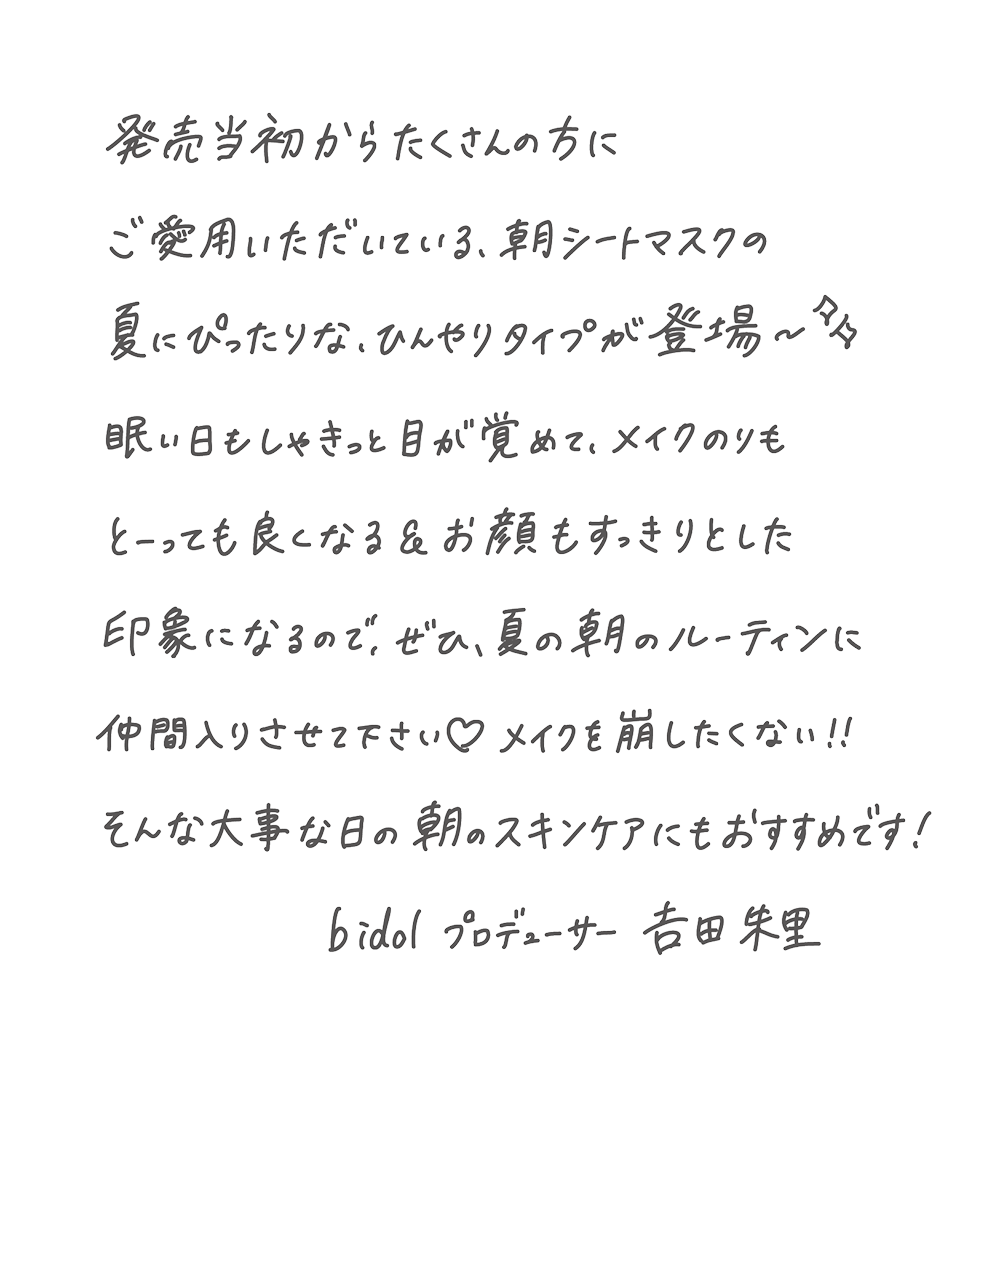 発売当初からたくさんの方に
ご愛用いただいている、朝シートマスクの
夏にぴったりな、ひんやりタイプが登場〜✨
眠い日もしゃきっと目が覚めて、メイクのりも
とーっても良くなる&お顔もすっきりとした
印象になるので、ぜひ、夏の朝のルーティンに
仲間入りさせて下さい♡ メイクを崩したくない!!
そんな大事な日の朝のスキンケアにもおすすめです!
bidol プロデューサー 吉田朱里